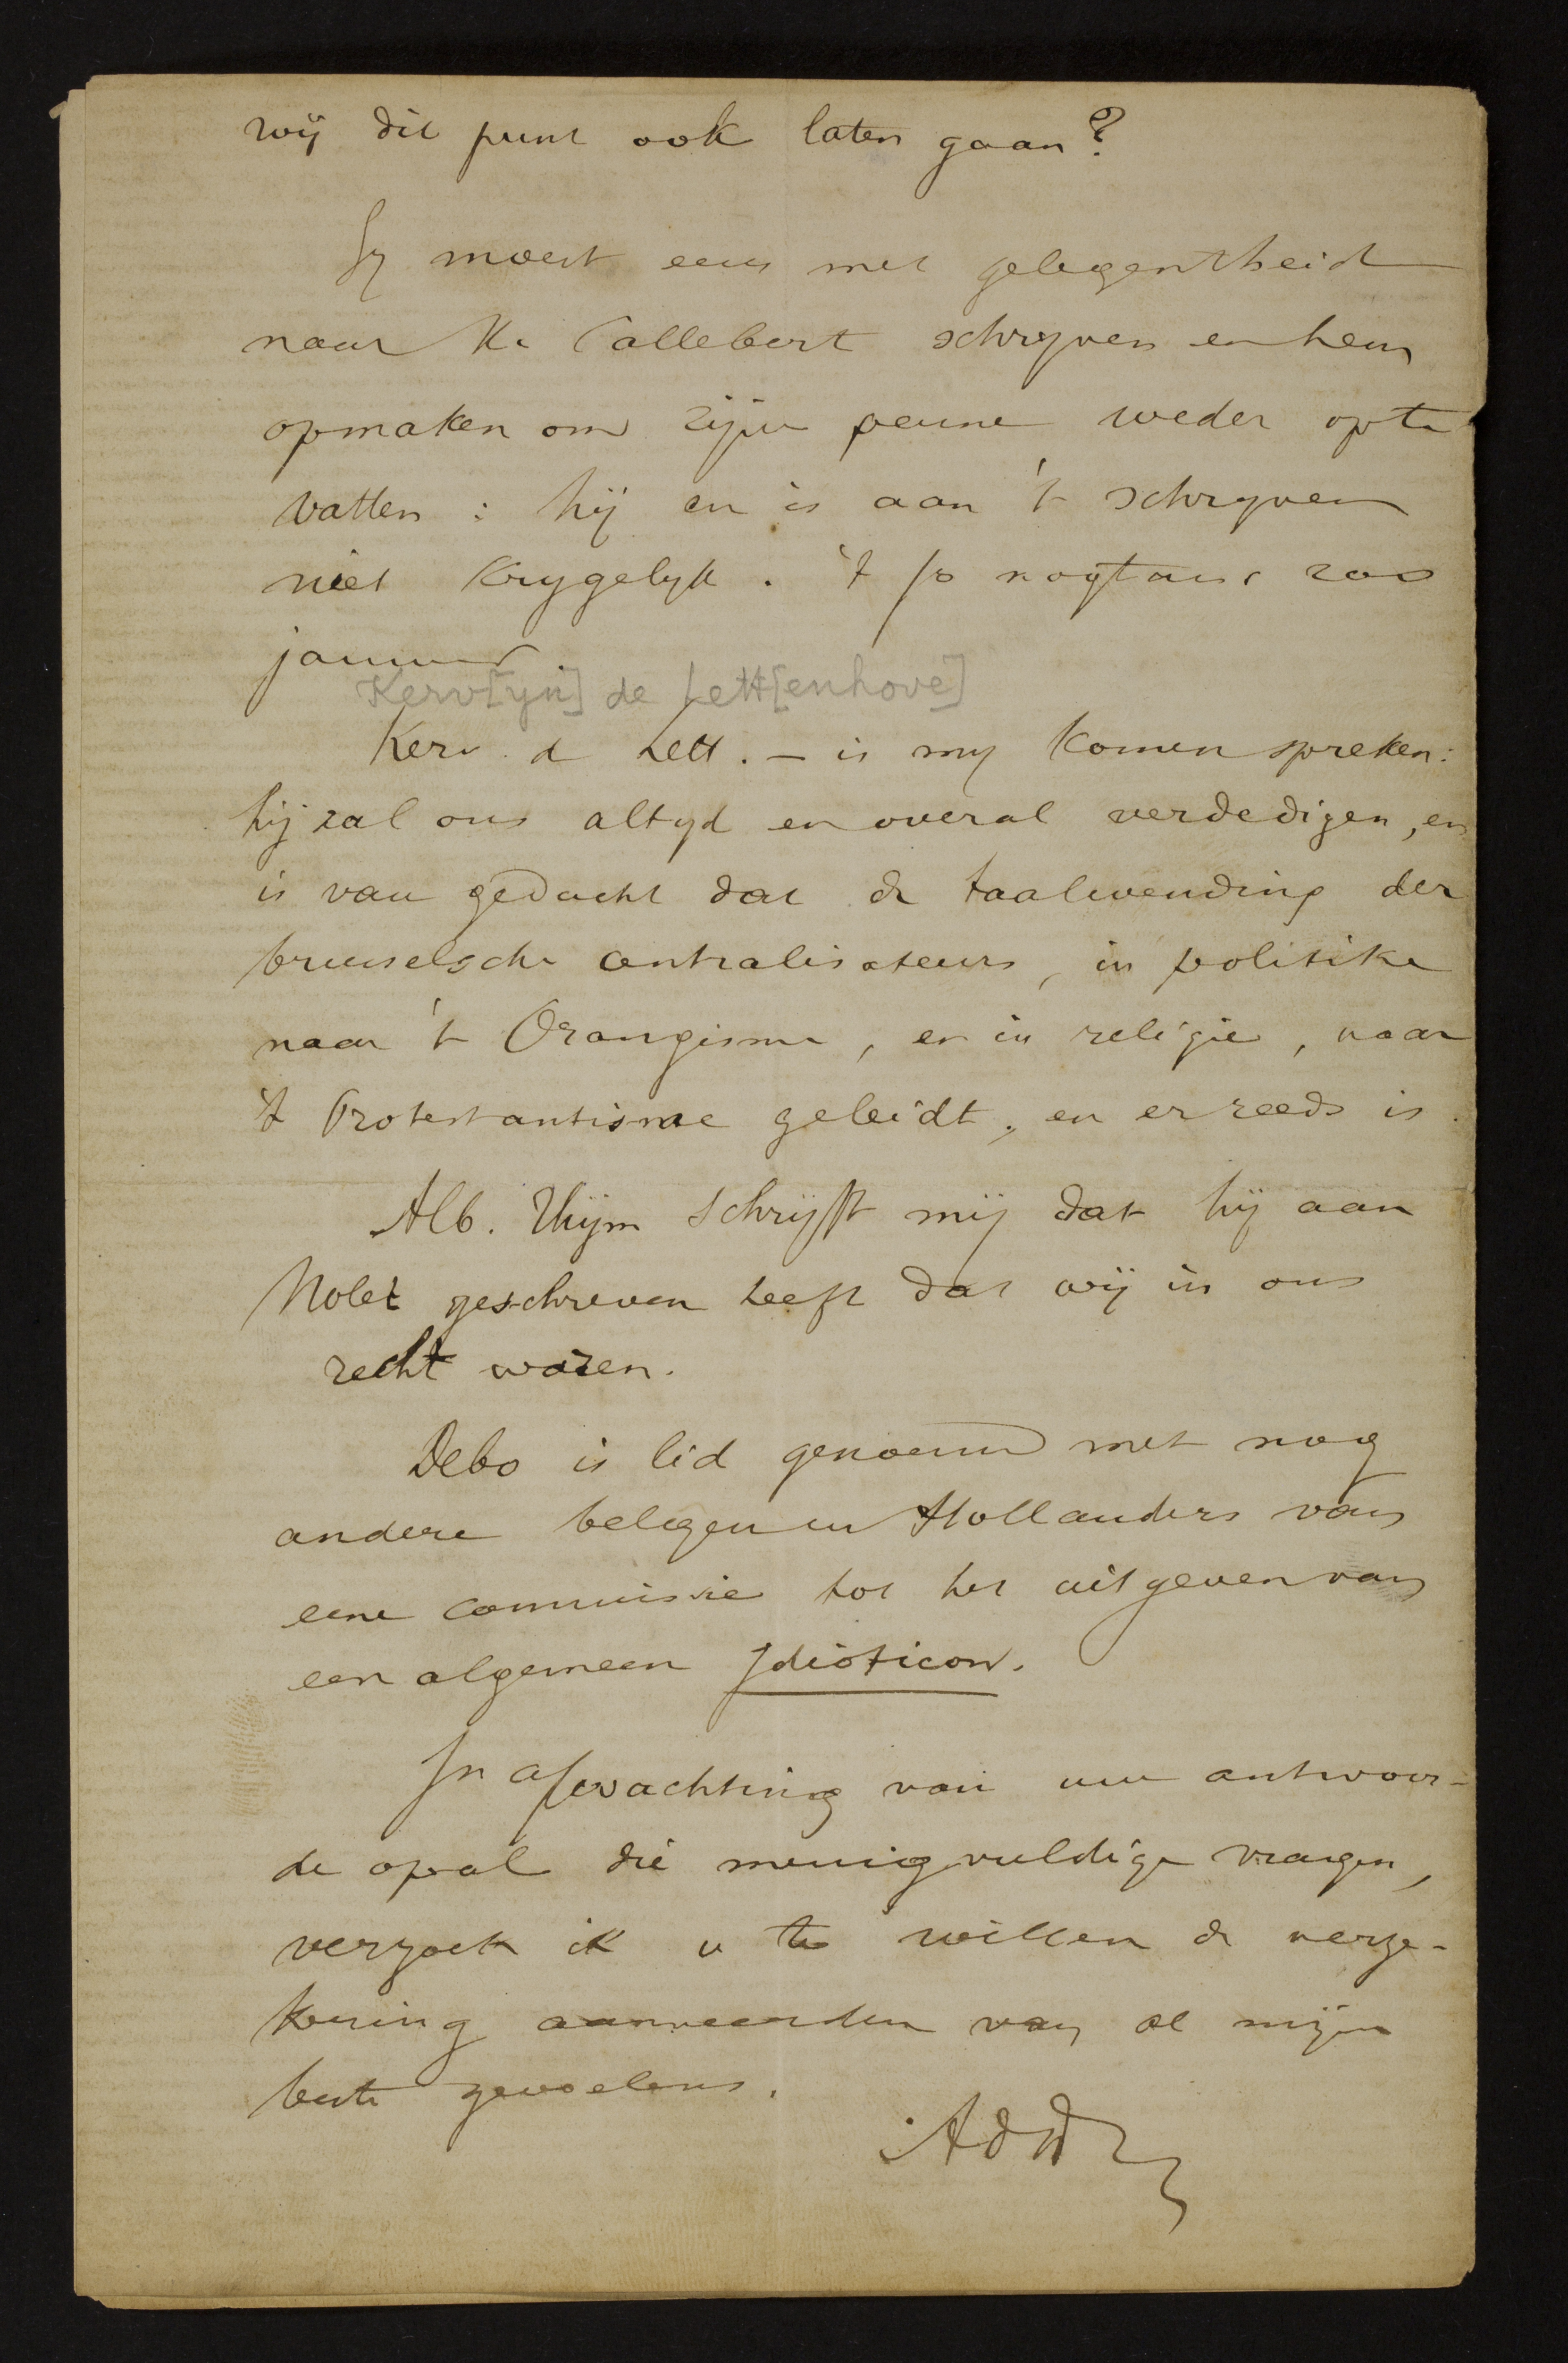 wij dit punt ook laten gaan?
Gy moest eens met gelegentheid
naar K. Callebert schryven en hem
opmaken om zijne penne weder op te
vatten : hij en is aan 't schryven
niet krygelyk . 't Is nogtans zoo
jammer
Kerv[yn] de Lett[enhove]
Kerv. d Lett. – is my komen spreken:
hij zal ons altyd en overal verdedigen, en
is van gedacht dat de taalwending der
brusselsche centralisateurs, in politike
naar 't Orangisme, en in religie, naar
't Protestantisme geleidt, en er reeds is.
Alb. Thijm schrijft mij dat hij aan
Nolet geschreven heeft dat wij in ons
recht waren.
Debo is lid genoemd met nog
andere belgen en Hollanders van
eene commissie tot het uitgeven van
een algemeen Idioticon.
In afwachting van uw antwoor-
de op al die menigvuldige vragen,
verzoek ik u te willen de verze-
kering aanveerden van al mijne
beste gevoelens.